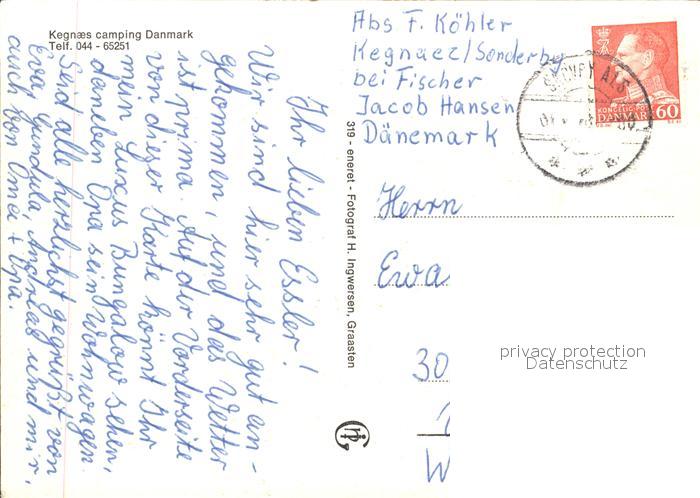 Kegnæs camping Danmark
Telf. 044 - 65251
Ihr lieben Essler!
Wir sind hier sehr gut an-
gekommen, und das Wetter
ist prima. Auf der Vorderseite
von dieser Karte könnt Ihr
mein Luxus Bungalow sehen,
daneben Opa sein Wohnwagen.
Seid alle herzlichst gegrüßt von
Ewa, Gundula, Andreas und mir,
auch von Oma + Opa.
319 - eneret - Fotograf H. Ingwersen, Graasten
Abs F. Köhler
Kegnaez/Sonderby
bei Fischer
Jacob Hansen
Dänemark
KONGELIG POST
DANMARK 60
Herrn
Ewa
30
1
W
privacy protection
Datenschutz